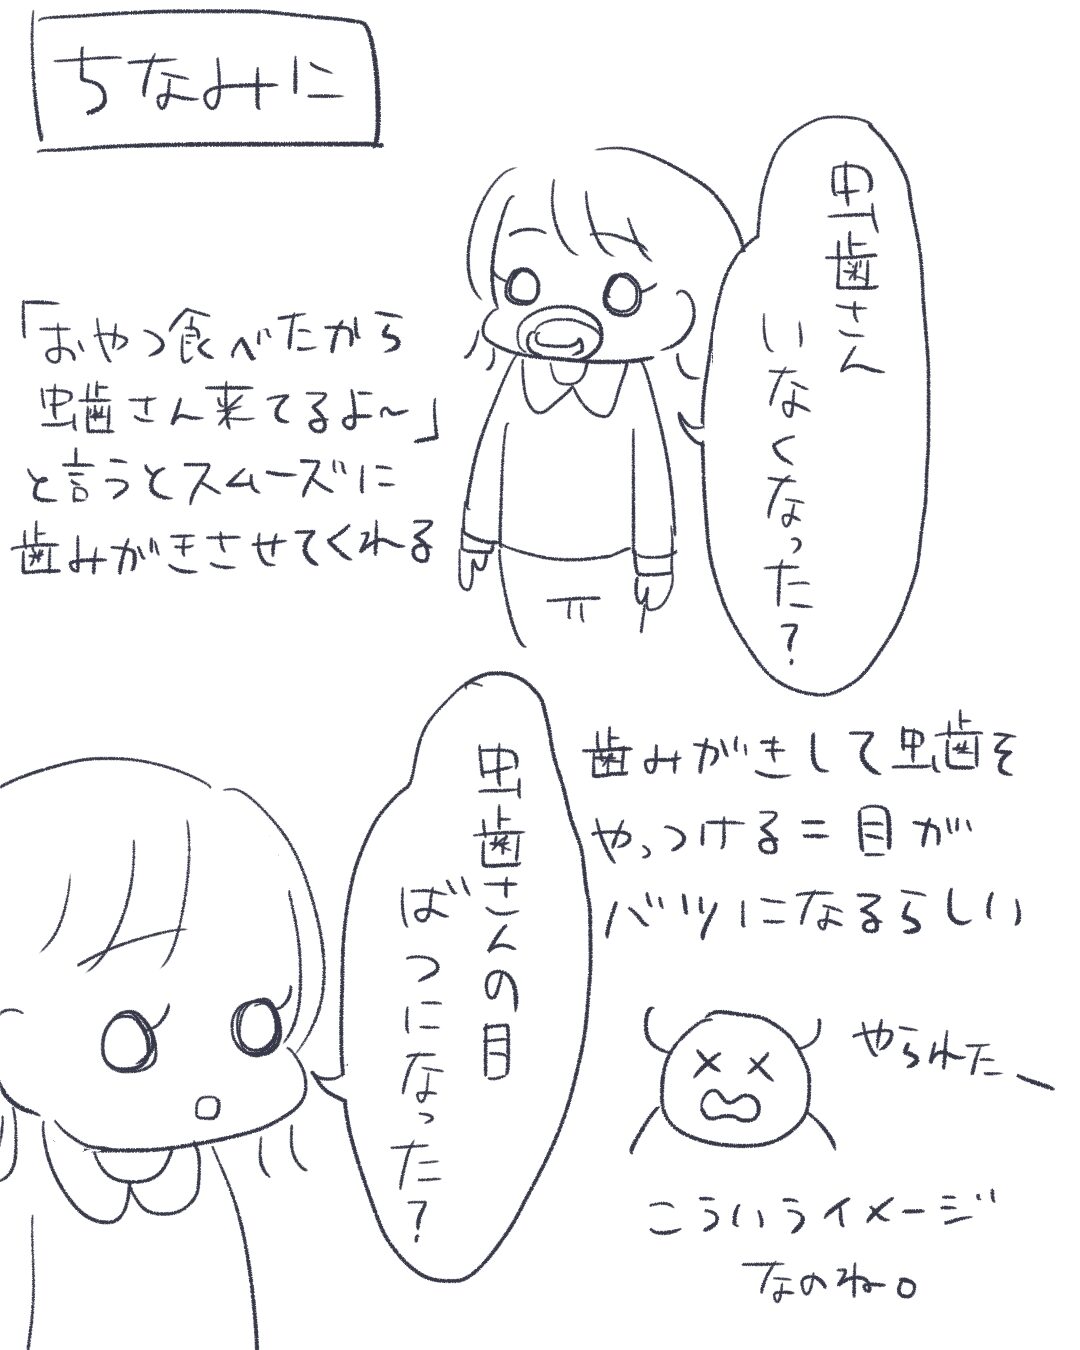 ちなみに
虫歯さん
いなくなった?
「おやつ食べたから
虫歯さん来てるよ〜」
と言うとスムーズに
歯みがきさせてくれる
虫歯さんの目
ばつになった?
歯みがきして虫歯を
やっつける=目が
バツになるらしい
やられたー
こういうイメージ
なのね。